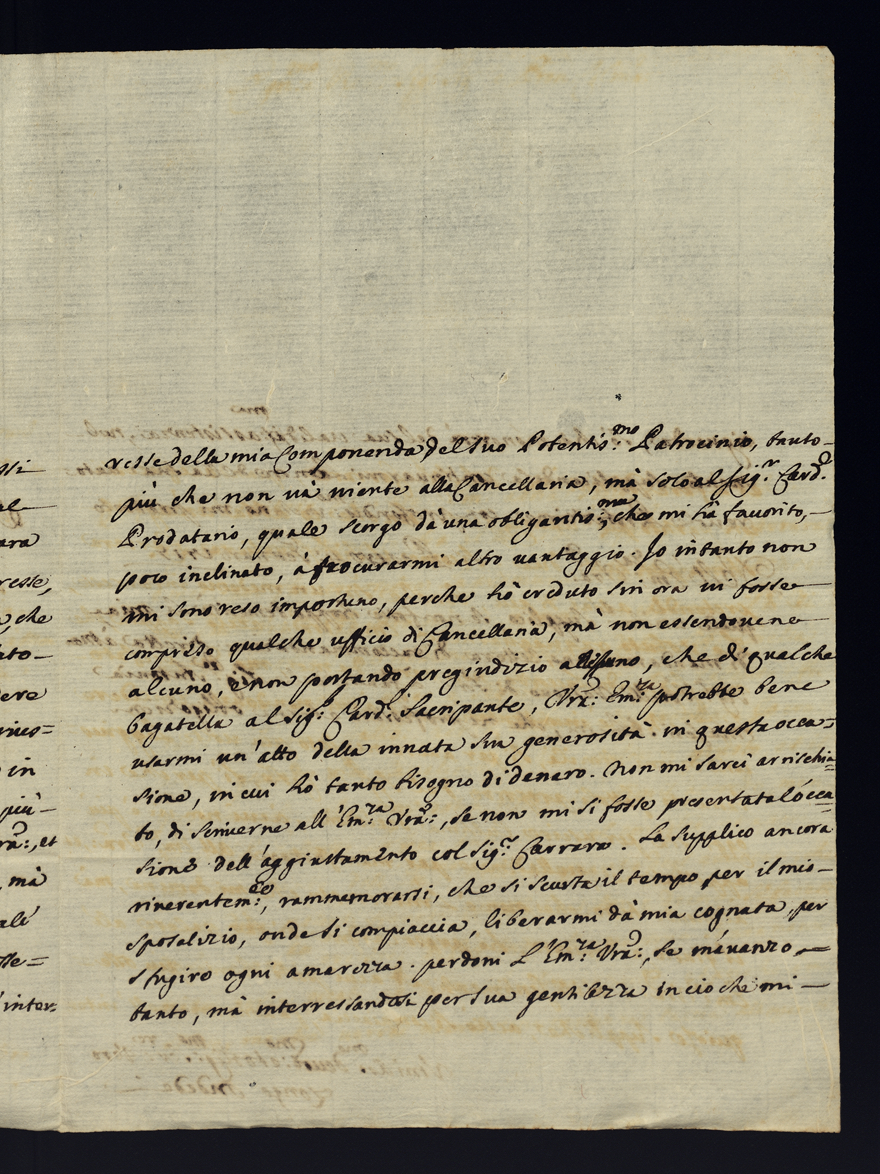 resse della mia Componenda del suo Potentis:mo Patrocinio, tanto-
più che non và niente alla Cancellaria, mà solo al Sig:r Card:
Prodatario, quale scorgo dà una obligantis:ma, che mi hà favorito,-
poco inclinato, à procurarmi altro vantaggio. Io intanto non
mi sono reso importuno, perche hò creduto sin ora vi fosse
compreso qualche ufficio di Cancellaria, mà non essendovene
alcuno, e non portando pregiudizio alcuno, che di qualche
bagatella al Sig:r Card: Sacripante, Vrã: Em:za potrebbe bene
usarmi un'atto della innata sua generosità in questa occa=
sione, in cui hò tanto bisogno di denaro. Non mi sarei arrischia=
to, di scriverne all'Em:za Vrã:, se non mi si fosse presentata l'occa=
sione dell'aggiustamento col Sig:r Carrara. La supplico ancora
riverentem:te, rammemorarsi, che si scusta il tempo per il mio-
sposalizio, onde si compiaccia, liberarmi dà mia cognata, per
sfugiro ogni amarezza. perdoni L'Em:za Vrã:, se m'avanzo
tanto, mà interressandosi per sua gentilezza in cio che mi-
ssi
al
ara
resse,
che
ato-
ere
in
più-
rã:, et
, mà
sse=
inter=